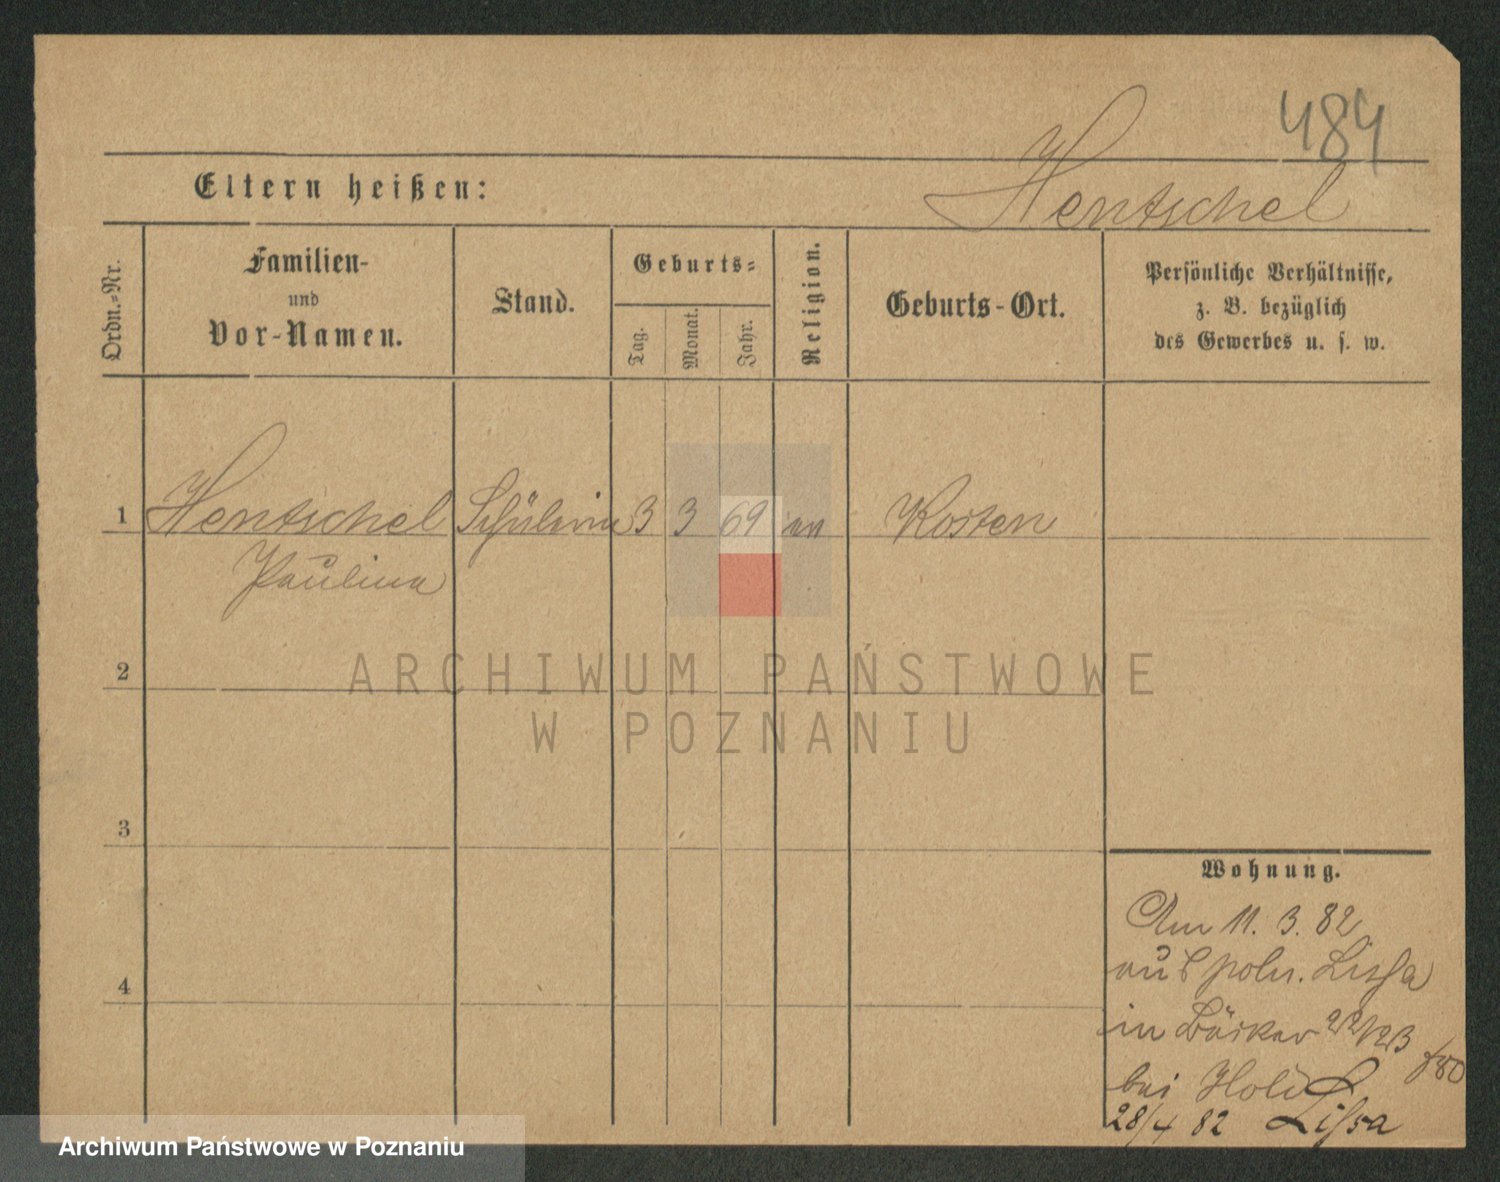 484
Eltern heißen: Hentschel
Ordn.-Nr.
Familien-
und
Vor-Namen.
Stand.
Geburts-
Tag.
Monat.
Jahr.
Religion.
Geburts-Ort.
Persönliche Verhältnisse,
z. B. bezüglich
des Gewerbes u. s. w.
1 Hentschel Schülerin 3 3 69 Kosten
Paulina
ARCHIWUM PAŃSTWOWE
W POZNANIU
2
3
4
Wohnung.
Am 11. 3. 82
aus poln. Lissa
in Bäcker
bei
28/4 82 Lissa
Archiwum Państwowe w Poznaniu